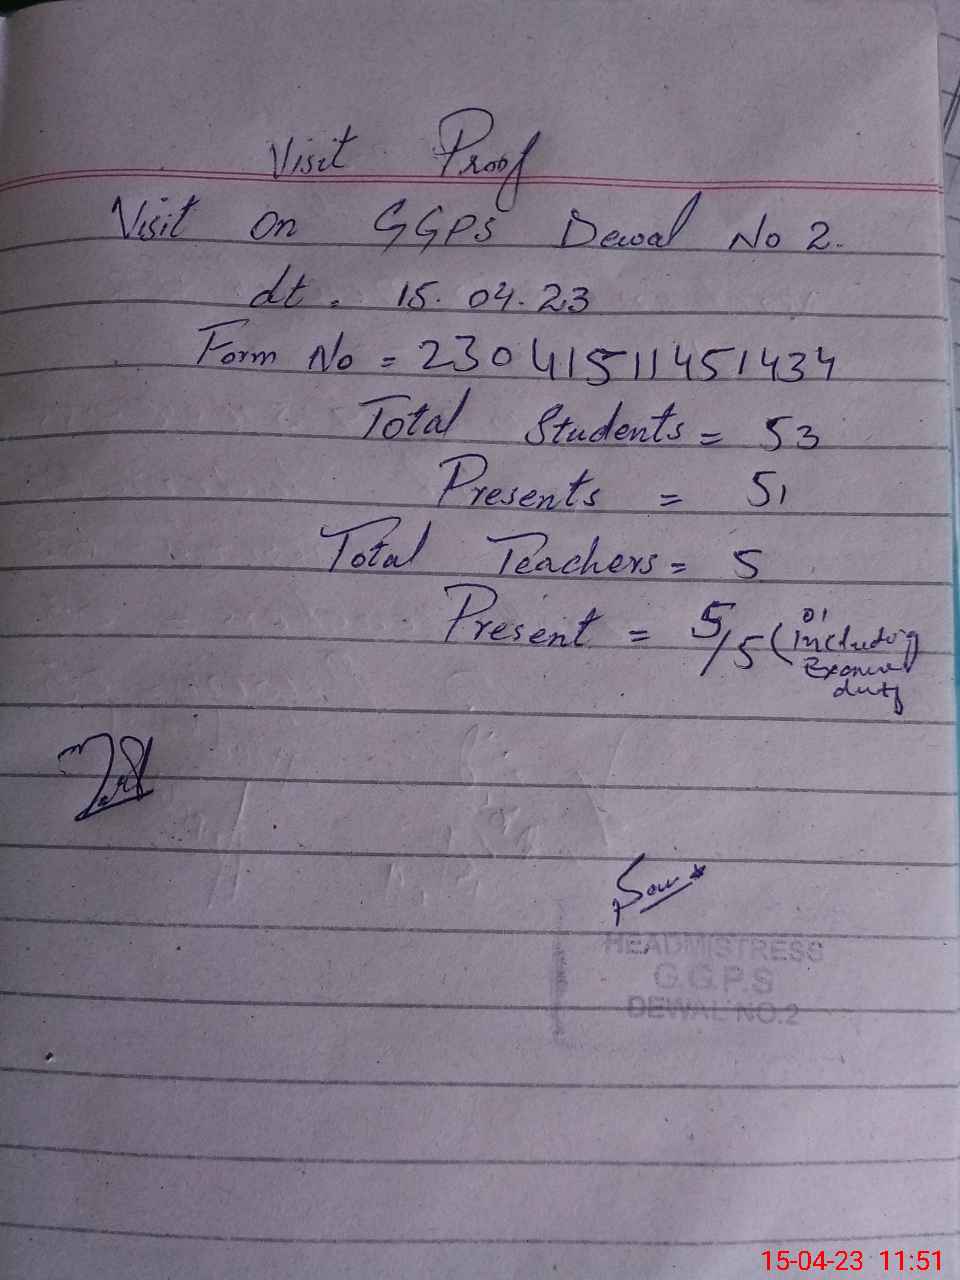 Visit Proof
Visit on GGPS Dewal No 2.
dt. 15.04.23
Form No = 23041511451434
Total Students = 53
Presents = 51
Total Teachers = 5
Present = 5/5 (01 including
duty
HEADMISTRESS
G.G.P.S
DEWAL NO.2
15-04-23 11:51